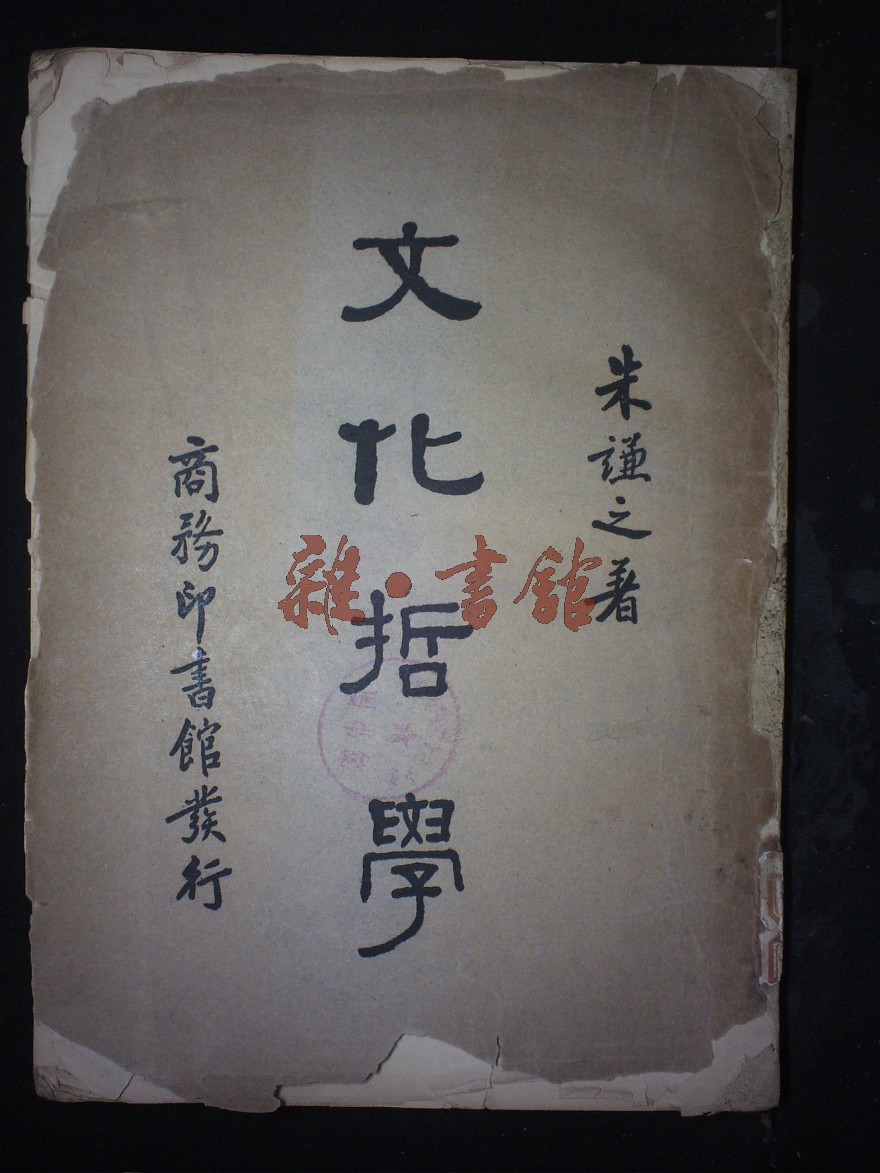 朱謙之著
文化哲學
商務印書館發行
雜·書館